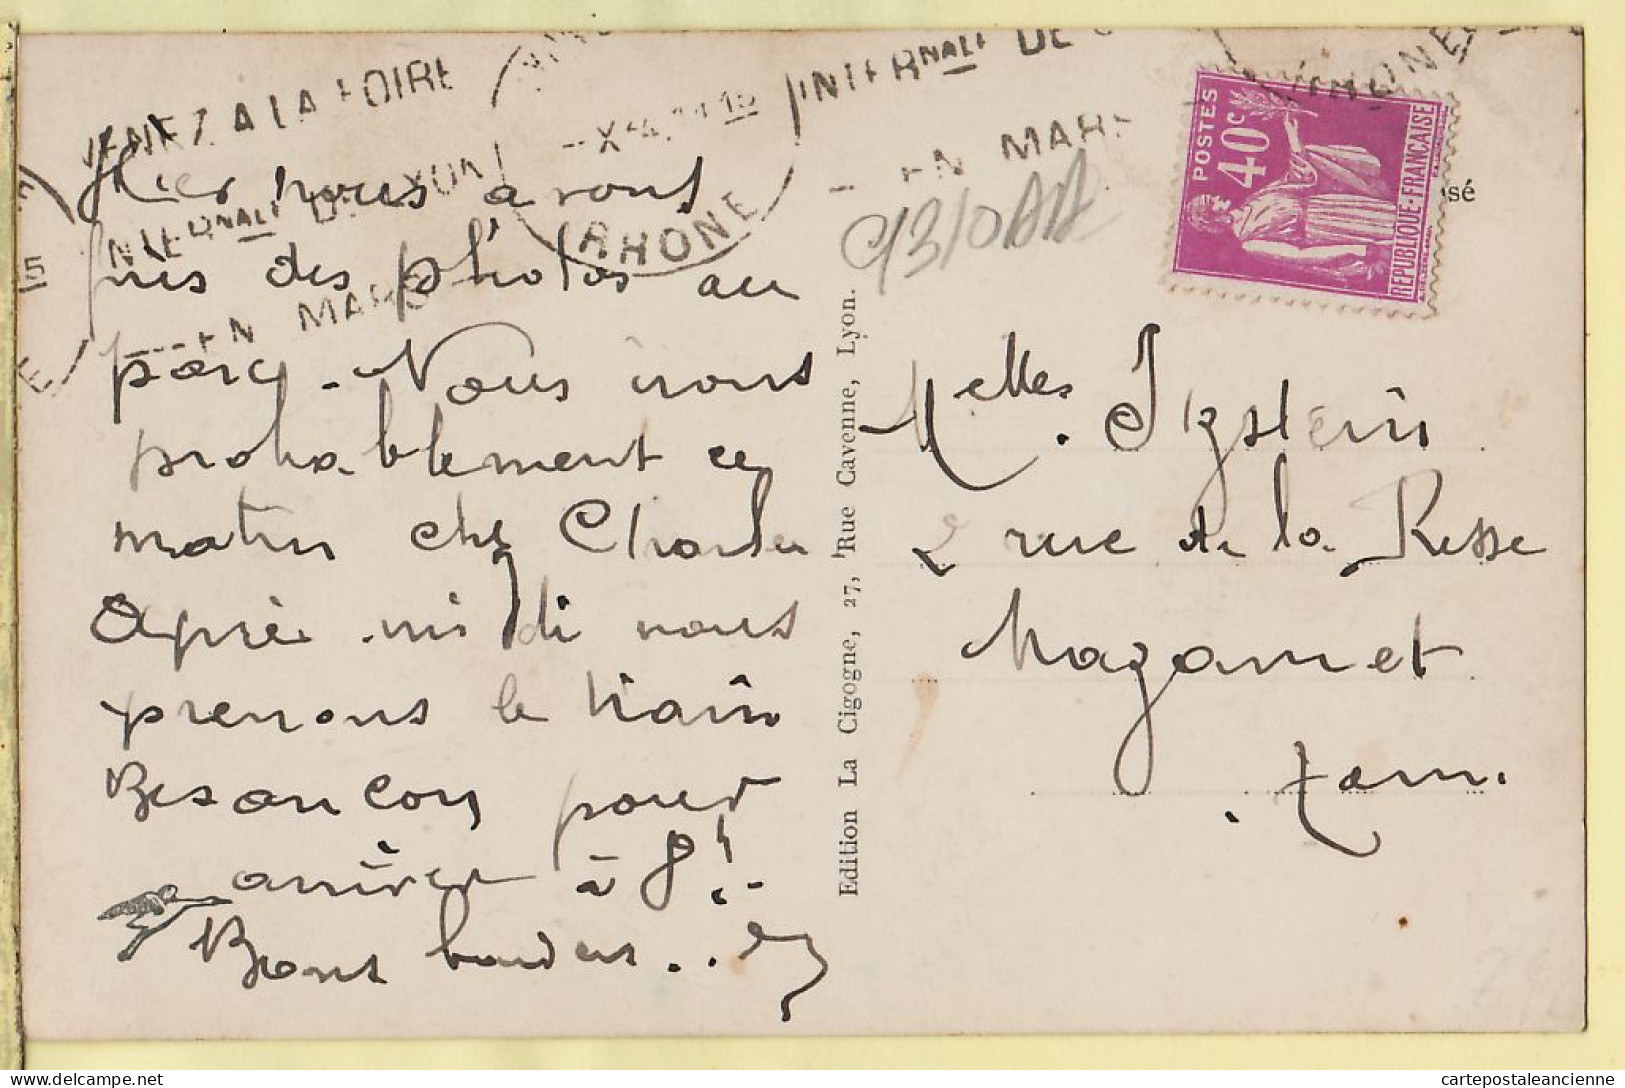 VENEZ A LA FOIRE
INTERNALE DE LYON
EN MARS
RHONE
INTERNALE DE
EN MARS
RHONE
POSTES
40c
REPUBLIQUE-FRANÇAISE
sé
Hier nous avons
pris des photos au
parc. Nous irons
probablement ce
matin chez Charles
Après-midi nous
prenons le train
Besançon pour
arriver à 8h.
Bons baisers..
Melles. Izstein
2 rue de la Resse
Mazamet
Tarn.
Edition La Cigogne, 27, Rue Cavenne, Lyon.
cartepostaleancienne.com